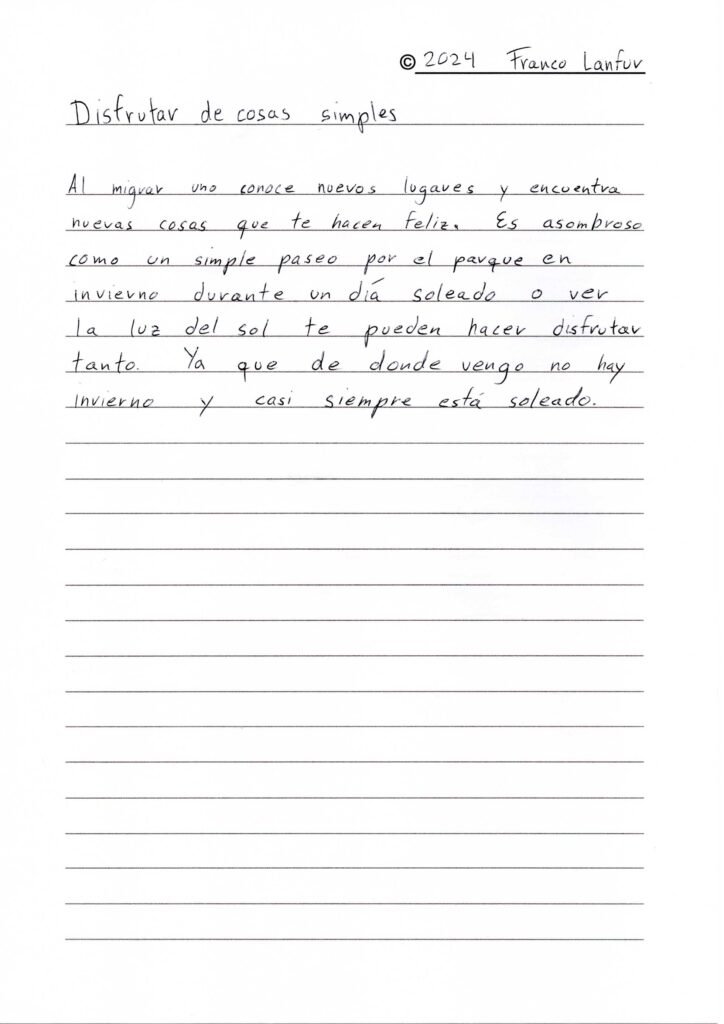 © 2024 Franco Lanfur
Disfrutar de cosas simples
Al migrar uno conoce nuevos lugares y encuentra
nuevas cosas que te hacen feliz. Es asombroso
como un simple paseo por el parque en
invierno durante un día soleado o ver
la luz del sol te pueden hacer disfrutar
tanto. Ya que de donde vengo no hay
invierno y casi siempre está soleado.